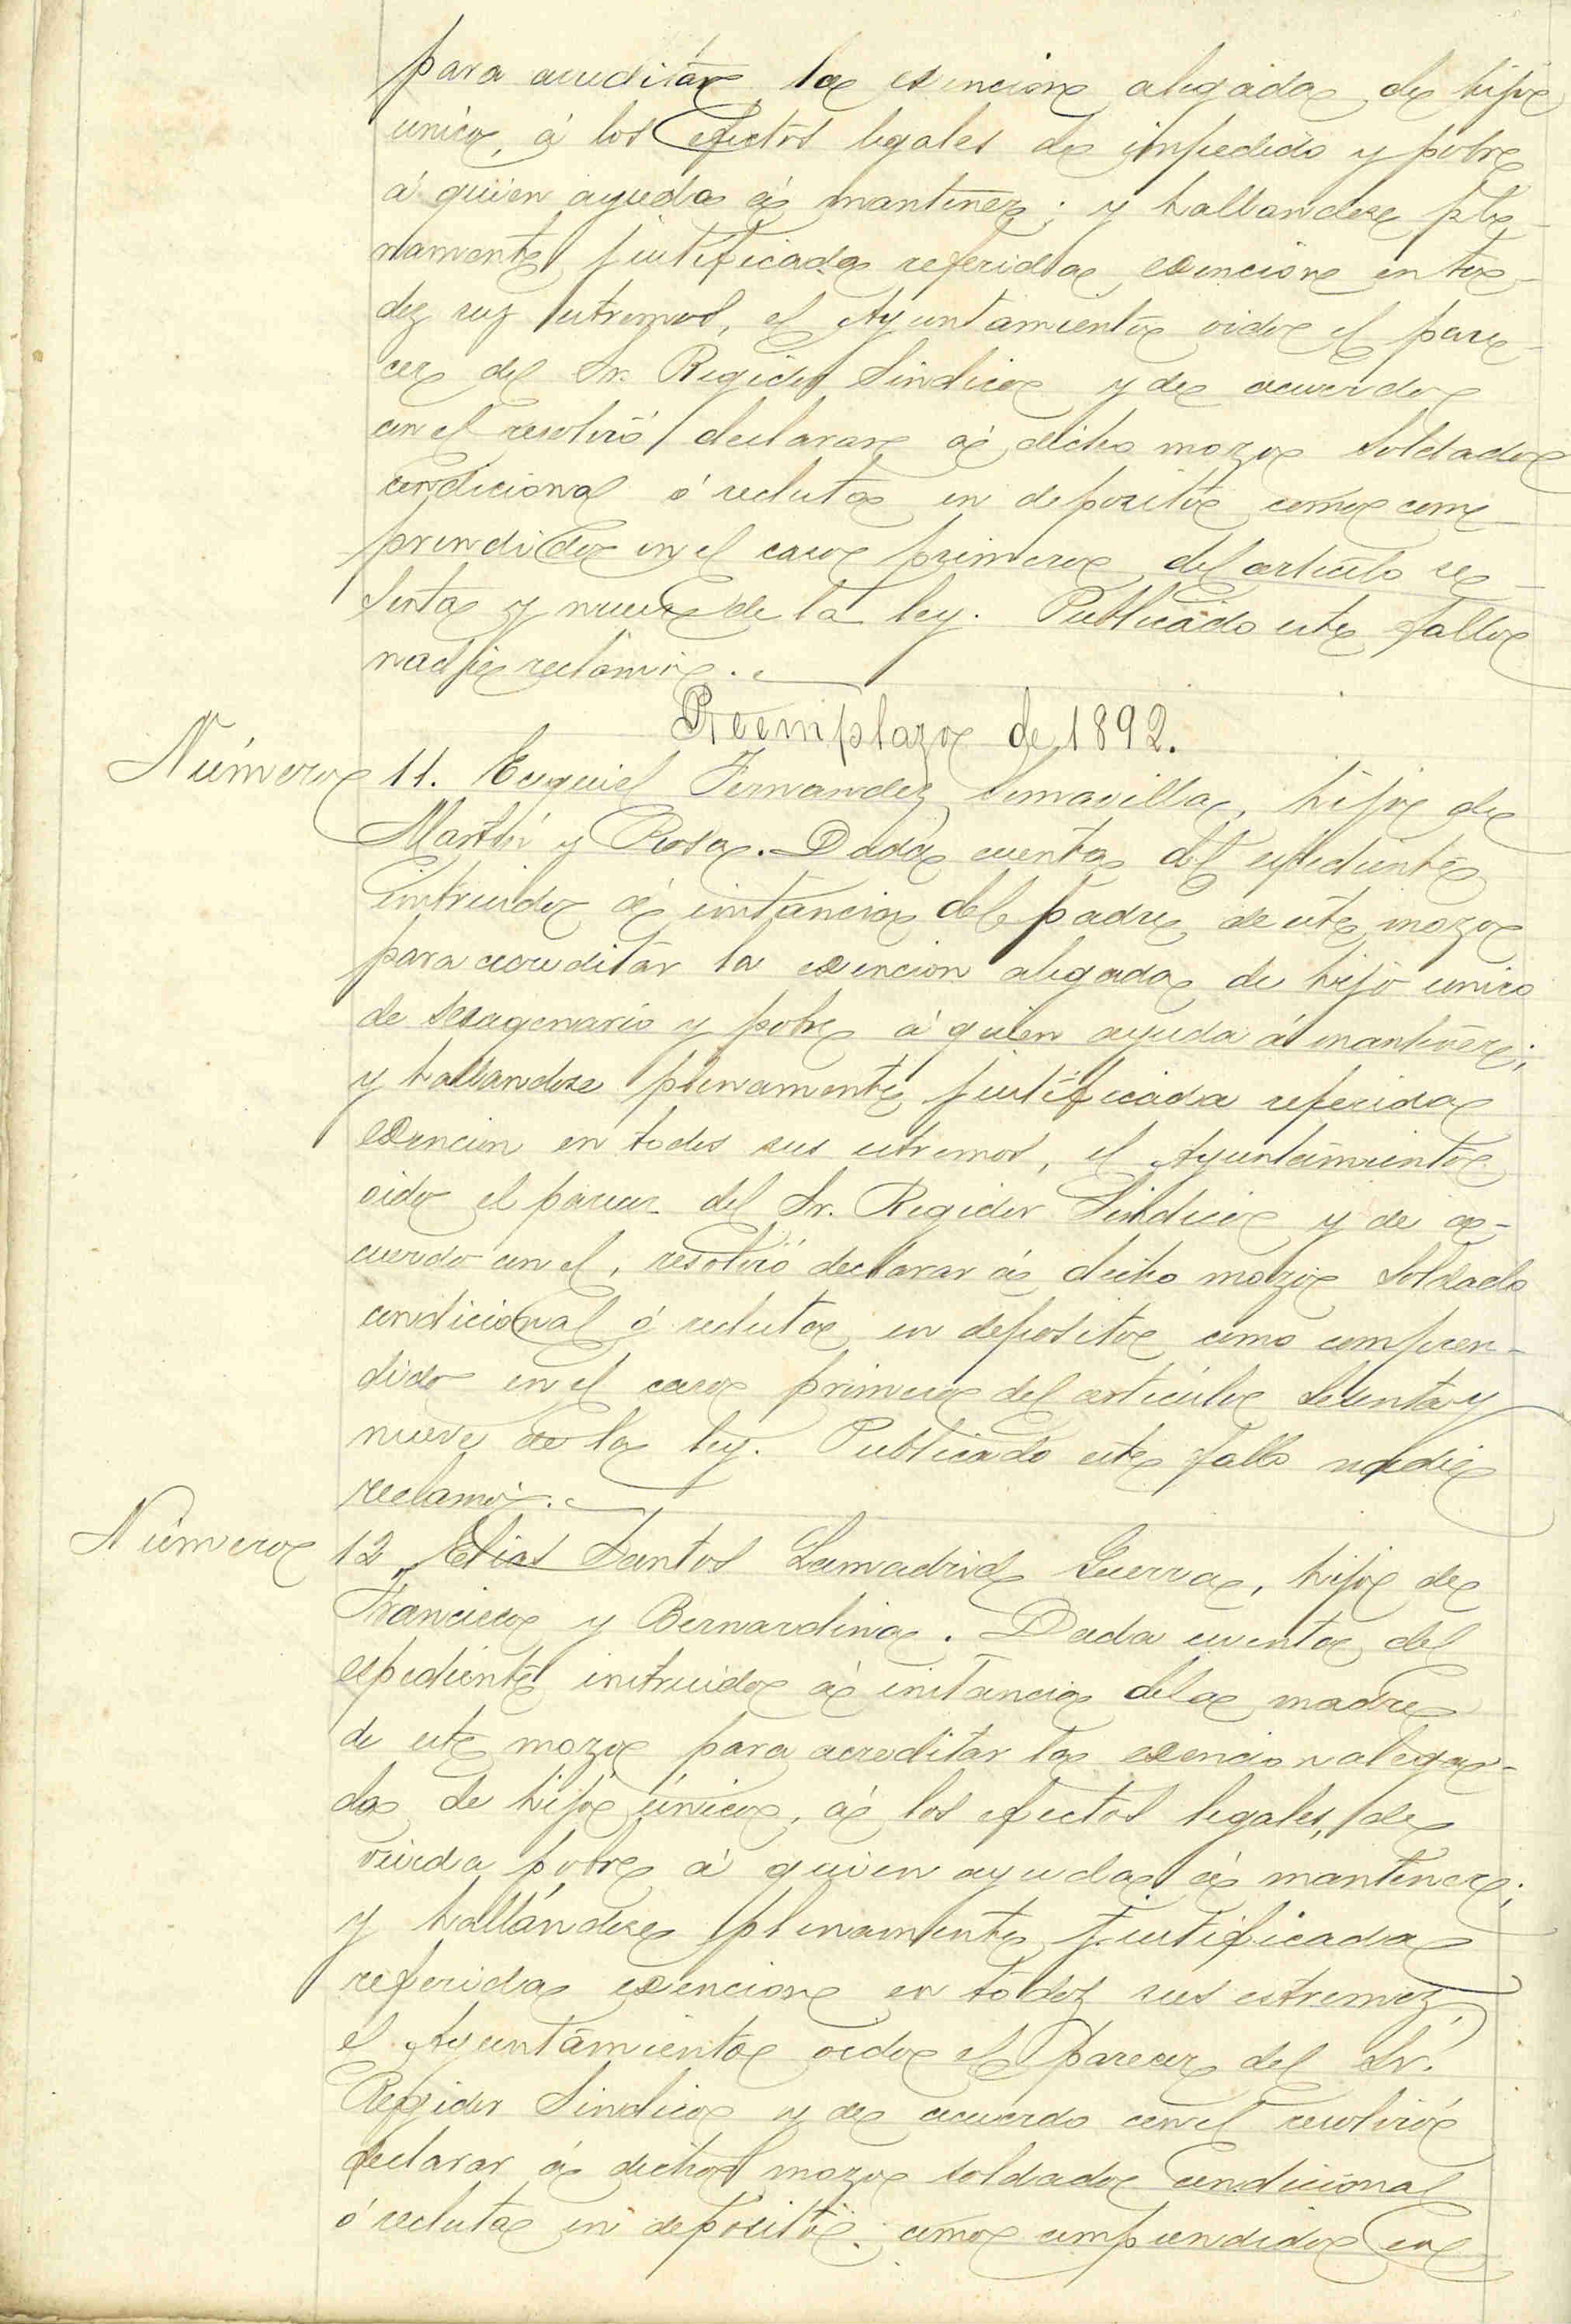 para acreditar la esencion alegada de hijo
unico, á los efectos legales de impedido y pobre
á quien ayuda á mantener; y hallandose ple-
namente justificada referida esencion en to-
dos sus estremos, el Ayuntamiento oido el pare-
cer del Sr. Regidor Sindico y de acuerdo
con el resolvió declarar á dicho mozo soldado
condicional ó recluta en deposito como com-
prendido en el caso primero del articulo se-
senta y nueve de la ley. Publicado este fallo
nadie reclamó.
Reemplazo de 1892.
Número 11. Ecequiel Fernandez Somavilla, hijo de
Martín y Rosa. Dada cuenta del espediente
instruido á instancia del padre de este mozo
para acreditar la esencion alegada de hijo unico
de sesagenario y pobre á quien ayuda á mantener;
y hallandose plenamente justificada referida
esencion en todos sus estremos, el Ayuntamiento
oido el parecer del Sr. Regidor Sindico y de a-
cuerdo con el, resolvió declarar á dicho mozo soldado
condicional ó recluta en deposito como compren-
dido en el caso primero del artículo sesenta y
nueve de la ley. Publicado este fallo nadie
reclamó.
Número 12 Elias Santos Lamadrid Guerra, hijo de
Francisco y Bernardina. Dada cuenta del
espediente instruido á instancia de la madre
de este mozo para acreditar la esencion alega-
da de hijo único, á los efectos legales, de
viuda pobre á quien ayuda á mantener;
y hallándose plenamente justificada
referida esencion en todos sus estremos,
el Ayuntamiento oido el parecer del Sr.
Regidor Sindico y de acuerdo con el resolvió
declarar á dicho mozo soldado condicional
ó recluta en deposito como comprendido en